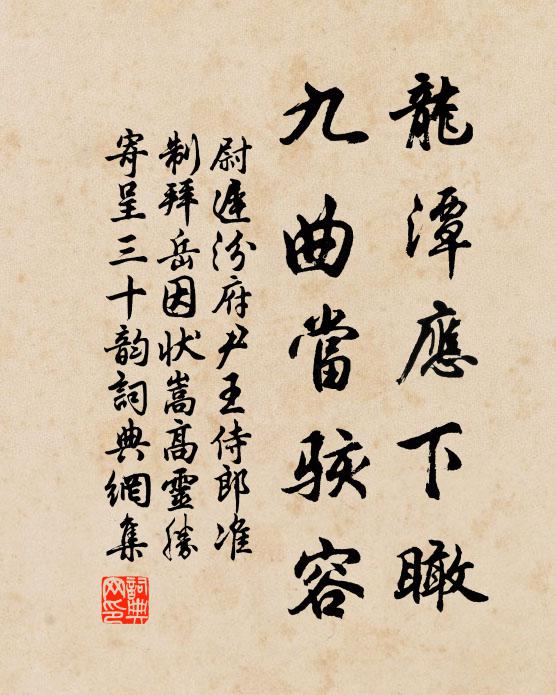 龍潭應下瞰
九曲當駭容
尉遲汾府尹王侍郎准
制拜岳因狀嵩高靈勝
寄呈三十韵詞典網集
詞典網印